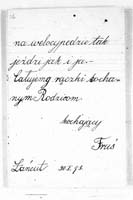 na welocypedzie tak
jeździ jak i ja.
Całujemy rączki kocha-
nym Rodzicom
kochający
Fruś
Łańcut 30. X. 93.